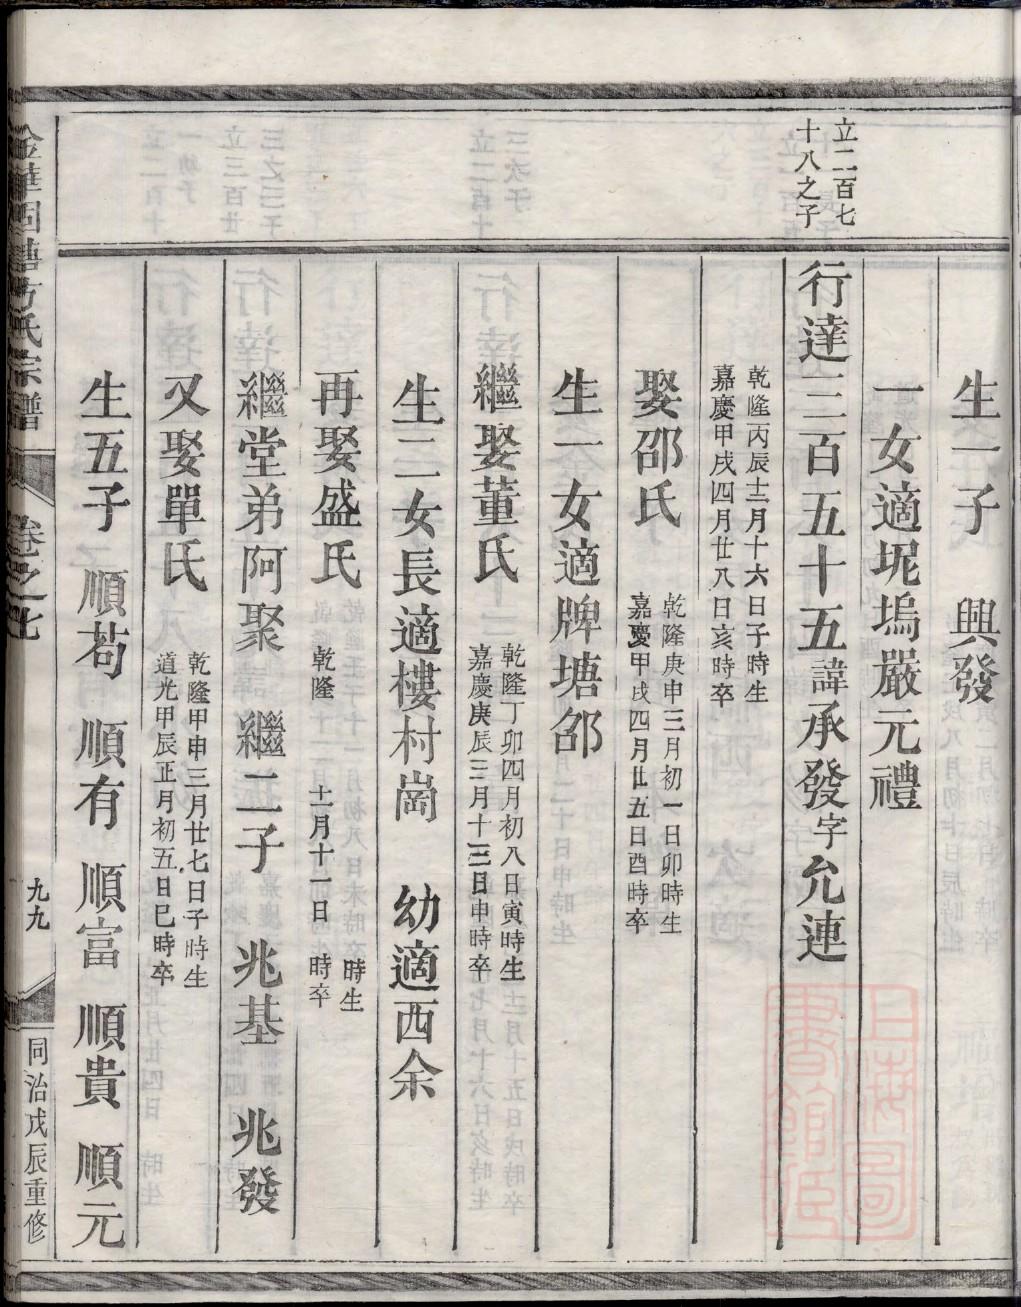 立二百七
十八之子
生一子　興發
一女適坭塢嚴元禮
行達三百五十五諱承發字允連
乾隆丙辰十二月十六日子時生
嘉慶甲戌四月廿八日亥時卒
娶邵氏
乾隆庚申三月初一日卯時生
嘉慶甲戌四月廿五日酉時卒
生一女適牌塘邵
繼娶董氏
乾隆丁卯四月初八日寅時生
嘉慶庚辰三月十三日申時卒
生二女長適樓村崗　幼適西余
再娶盛氏
時生
乾隆　十二月十一日　時卒
繼堂弟阿聚　繼二子　兆基　兆發
又娶單氏
乾隆甲申三月廿七日子時生
道光甲辰正月初五日巳時卒
生五子　順苟　順有　順富　順貴　順元
方氏宗譜
卷之七
九九
同治戊辰重修
上海圖書館藏